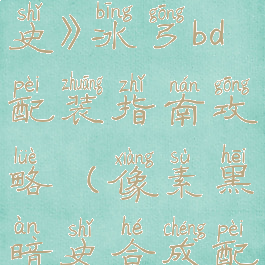 shǐ bīng gōng
史》冰弓bd
pèi zhuāng zhǐ nán gōng
配装指南攻
lüè xiàng sù hēi
略（像素黑
àn shǐ hé chéng pèi
暗史合成配